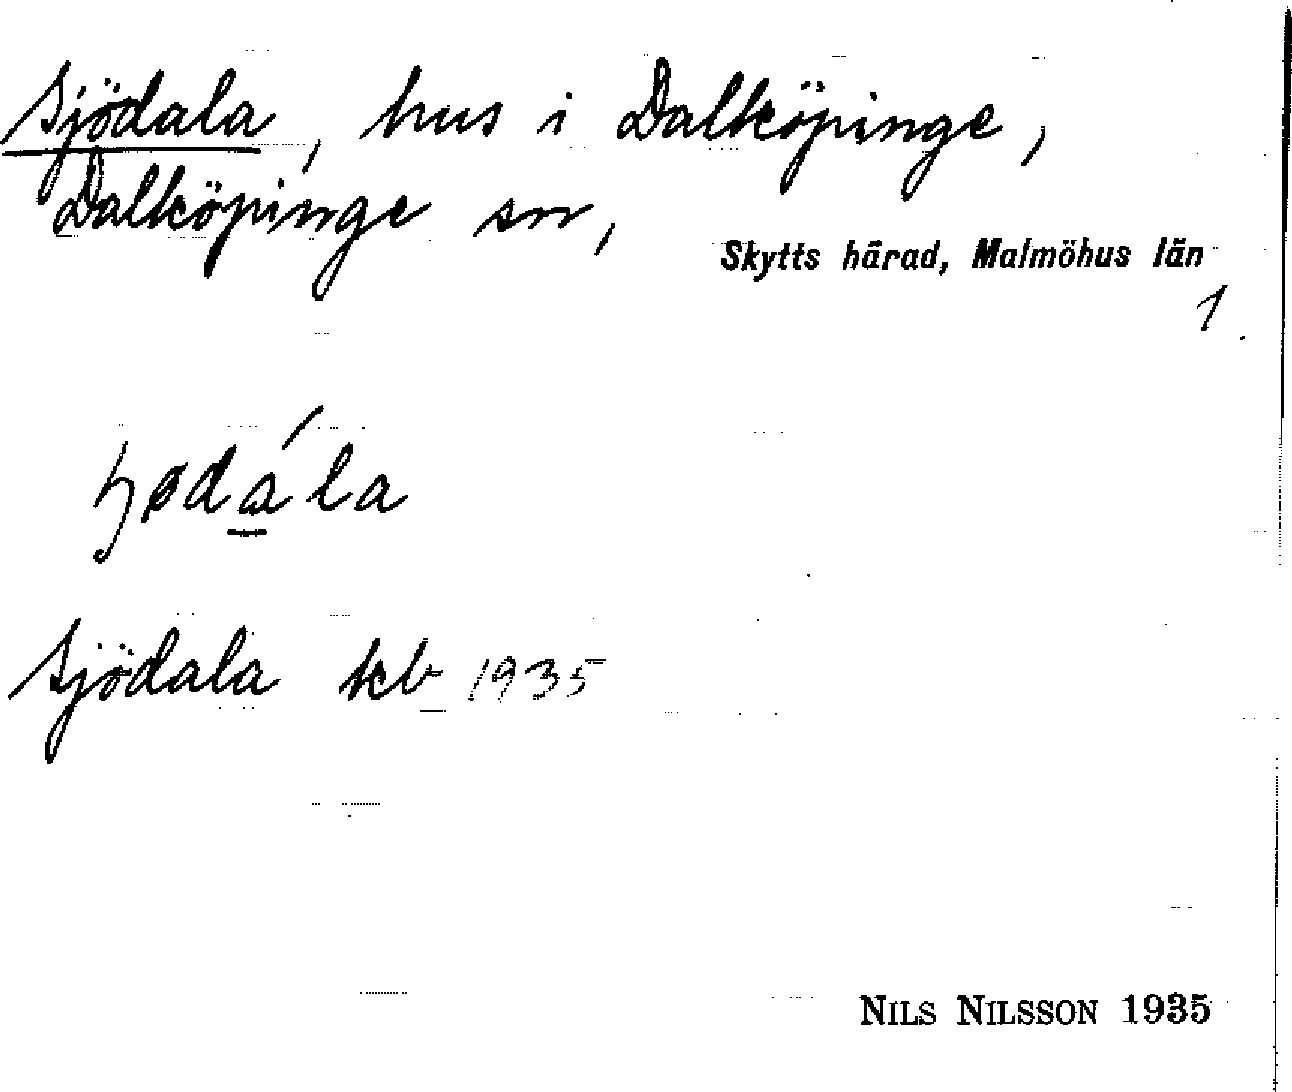 Sjödala, hus i Dalköpinge,
Dalköpinge sn,
Skytts härad, Malmöhus län
1
ɧødá̲la
Sjödala kb 1935
NILS NILSSON 1935